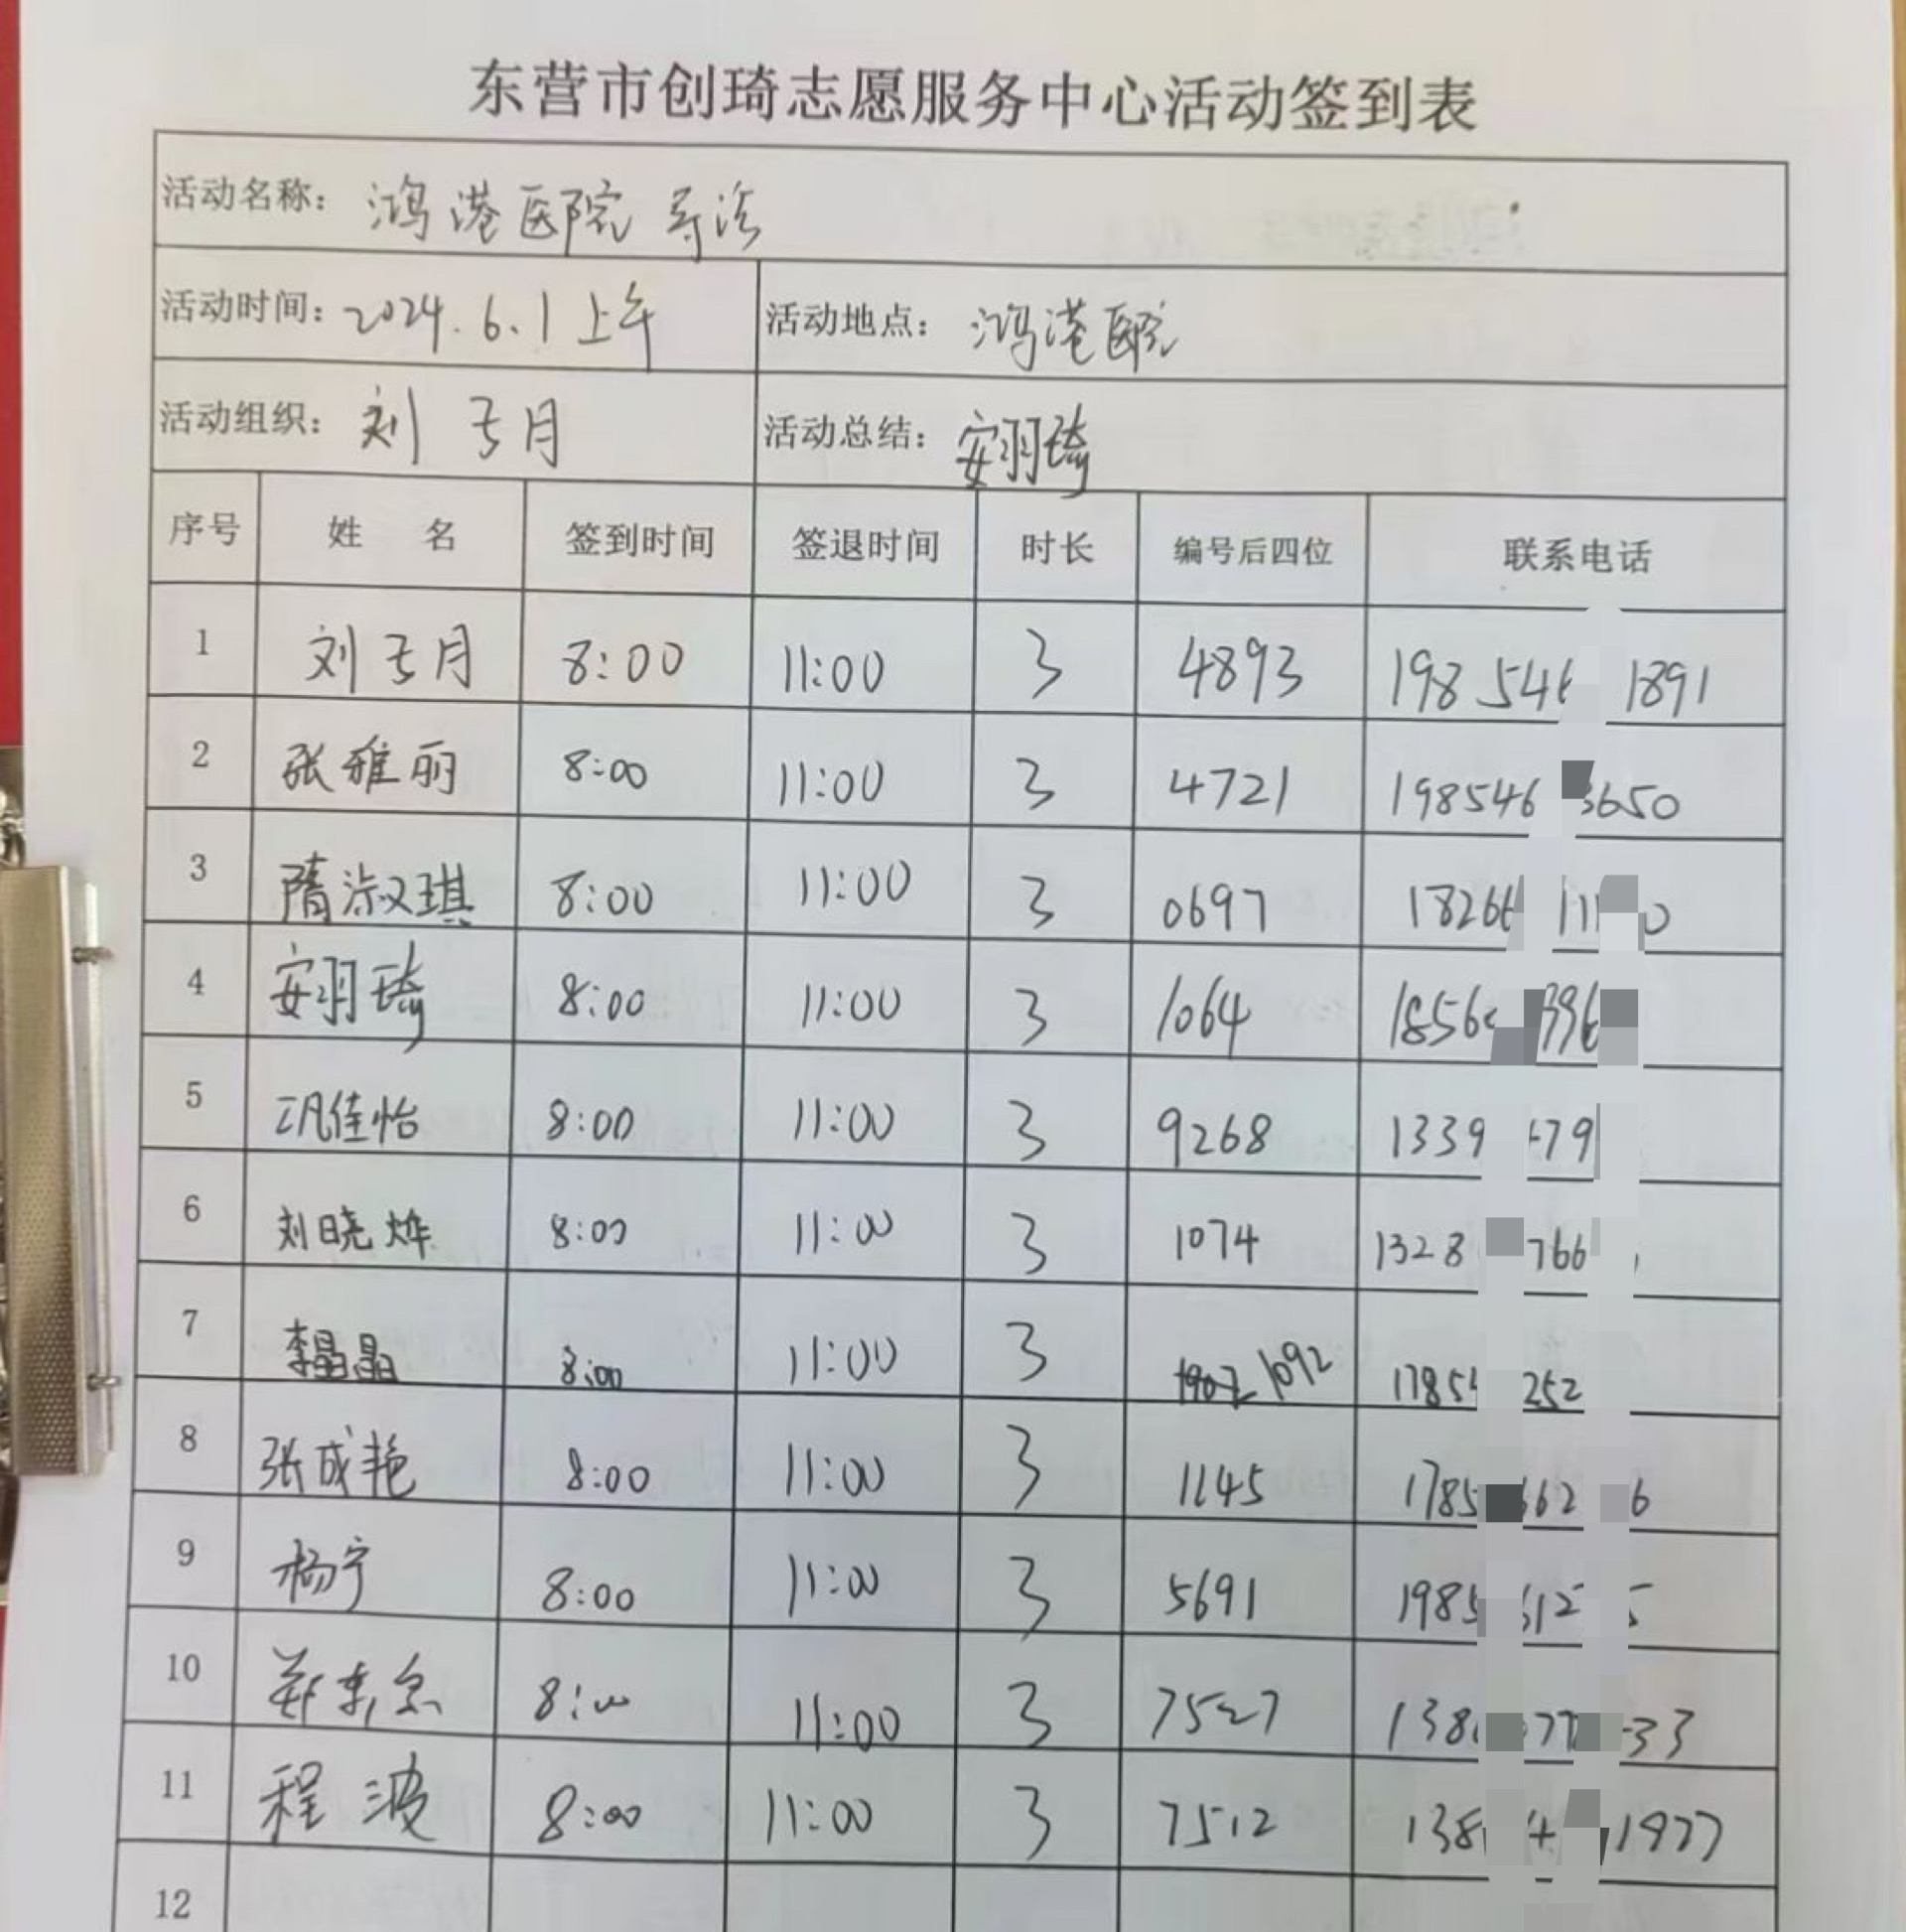 东营市创琦志愿服务中心活动签到表
活动名称: 鸿港医院 导诊
活动时间: 2024.6.1上午 活动地点: 鸿港医院
活动组织: 刘 于月 活动总结: 安羽琦
序号 姓 名 签到时间 签退时间 时长 编号后四位 联系电话
1 刘 于月 8:00 11:00 3 4893 198 546 1891
2 张雅丽 8:00 11:00 3 4721 198546 3650
3 隋淑琪 8:00 11:00 3 0697 18266 11 0
4 安羽琦 8:00 11:00 3 1064 1856 996
5 佳怡 8:00 11:00 3 9268 1339 79
6 刘晓烨 8:00 11:00 3 1074 1328 766
7 李晶晶 8:00 11:00 3 1092 1785 252
8 张成艳 8:00 11:00 3 1145 1785 662 6
9 杨宁 8:00 11:00 3 5691 1985 612 5
10 8:00 11:00 3 7527 138 77 33
11 程波 8:00 11:00 3 7512 138 4 1977
12